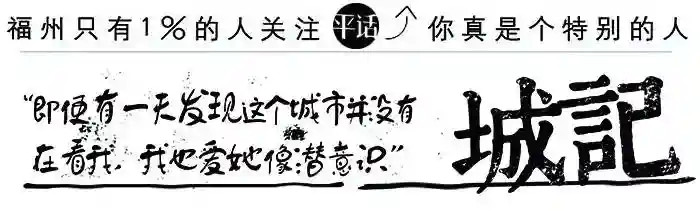 福州只有1%的人关注 平话 你真是个特别的人
“即便有一天发现这个城市并没有
在看我，我也爱她像潜意识”
城記